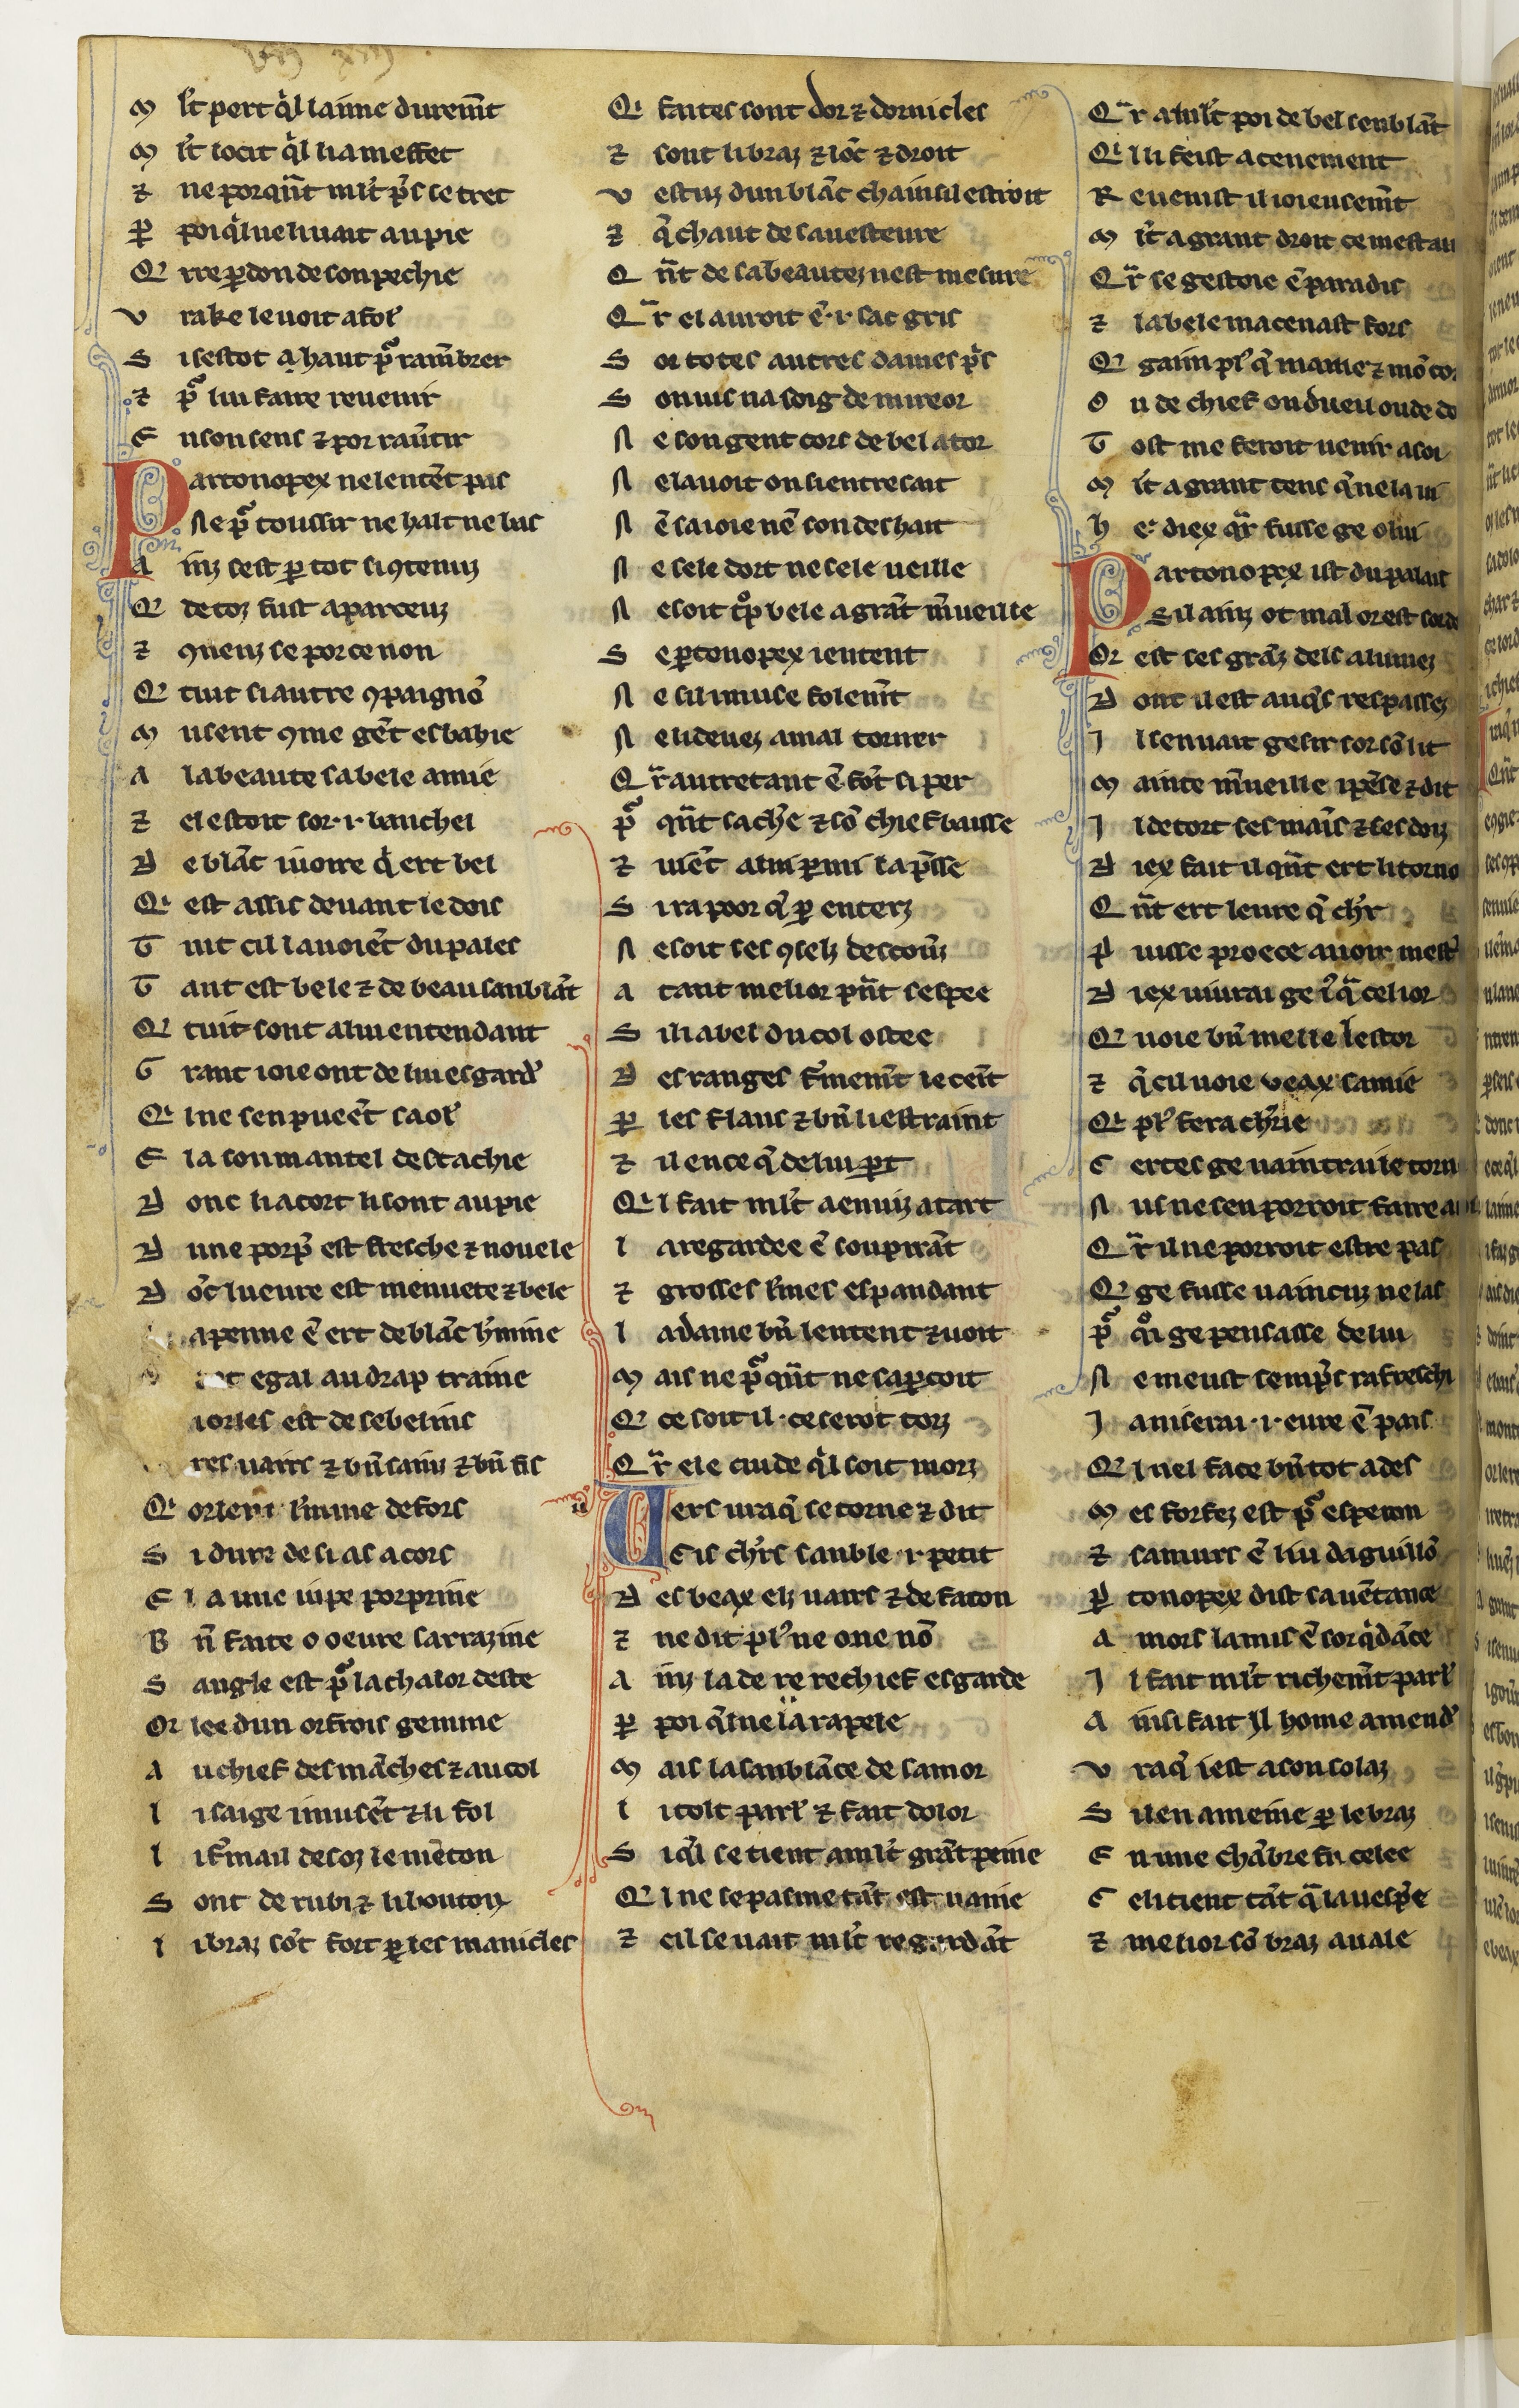 M lt̃ pert q̾l laime duremt̃
M lt̃ socit q̾l li a meffet
⁊ ne porqñt mlt̃ p̾s se tret
ꝑ poi q̾l ne li vait au pie
Q̾ rre ꝑdon de son pechie
V rake le voit afol̾
S i sestot ꝗ haut pͬ ramẽbrer
⁊ pͬ lui faire revenir
E n son sens ⁊ por rav̾tir
Partonopex ne lentẽt pas
Ne pͬ toussir ne halt ne bas
A inz sest ꝑ tot si ꝯtenuz
Q̾ de toz fust aparceuz
⁊ ꝯneuz se por ce non
Q̾ tuit si autre ꝯpaignõ
M usent ꝯme gẽt esbahie
A la beaute sa bele amie
⁊ el estoit sor ·i· banchel
D e blãc ivoire q̾ ert bel
Q̾ est assis devant le dois
T uit cil lavoiẽt du pales
T ant est bele ⁊ de beau sanblãt
Q̾ tuit sont a lui entendant
G rant ioie ont de lui esgard̾
Q̾ l ne sen pueẽt saol̾
E la son mantel destachie
D onc li acort li sont au pie
D une porp̾ est fresche ⁊ novele
D õt lueure est menuete ⁊ bele
a penne ẽ ert de blãc h̾mine
egal au drap traine
iorles est de sebelins
res vairs ⁊ bñ sains ⁊ bñ fis
Q̾ orlent l̾mine defors
S i dure de si as acors
E l a une iupe porprine
B ñ faite o oeure sarrazine
S angle est pͬ la chalor deste
Or lee dun orfrois gemme
A u chief des mãches ⁊ au col
L i saige i musẽt ⁊ li fol
L i f̾mail desoz le mẽton
S ont de rubi ⁊ li bouton
L i braz sõt fort ꝑ les manicles
Q̾ faites sont dor ⁊ dornicles
⁊ sont li braz ⁊ lõc ⁊ droit
V estuz dun blãc chainsil estroit
⁊ q̾ chaut de sa vesteure
Q ñt de sa beautez nest mesure
Q̃r el auroit ẽ ·i· sac gris
S or totes autres dames p̾s
S on vis na soig de mireor
N e son gent cors de bel ator
N e lavoit on si entresait
N ẽ sa ioie nẽ son deshait
N e sele dort ne sele veille
N e soit t͛p bele a grãt m̾veille
S e ꝑtonopex i entent
N e sil i muse folemt̃
N e li devez a mal torner
Q̃r autretant ẽ fõt si per
pͬ qñt sach̾e ⁊ sõ chief baisse
⁊ viẽt a lui ꝑmi la p̾sse
S i ra poor q̾ ꝑ enterz
N e soit ses ꝯselz descov̾z
A tant melior pñt sespee
S i li a bel du col ostee
D es ranges f̾memt̃ le ceĩt
ꝑ les flans ⁊ bñ li estraint
⁊ il ence q̾ de lui ꝑt
Q̾ l fait mlt̃ a enviz a tart
L a regardee ẽ soupirãt
⁊ grosses l̾mes espandant
L a dame bñ lentent ⁊ voit
M ais ne pͬ qñt ne saꝑcoit
Q̾ ce soit il · ce serot torz
Q̃r ele cuide q̾l soit morz
Vers uraq̾ se torne ⁊ dit
Cis ch̾rs sanble ·i· petit
D es beax elz vairs ⁊ de facon
⁊ ne dit pl᾽ ne one nõ
A inz la de re rechief esgarde
ꝑ poi q̾l ne la rapele
M ais la sanblãce de samor
L i tolt parl̾ ⁊ fait dolor
S i q̾l se tient a mlt̃ grãt peine
Q̾ l ne se pasme tãt est vaine
⁊ cil se vait mlt̃ regardãt
Q̃r a mlt̃ poi de bel senblãt
Q̾ l li feist a cenement
R evenist il ioieusemt̃
M lt̃ a grant droit ce mest au
Q̃r se gestoie ẽ paradis
⁊ la bele macenast fors
Q̾ gaim pl᾽ q̾ maame ⁊ mõ co
O u de chief ou dueil ou de do
T ost me feroit venir a soi
M lt̃ a grant tens q̾ ne la vi
h e diex q̃r fusse ge o lui
Partonopex ist du palais
Sil ainz ot mal or est
Or est ses grãz dels alumez
D ont il est auq̾s respassez
I l sen vait gesir sor sõ lit
M ainte m̾veille i pẽse ⁊ dit
I l detort ses mais ⁊ ses doiz
D iex fait il qñt ert li torno
Q ñt ert leure q̾ ch̾r
P uisse proece avoir mest̾
D iex viurai ge iͬqͣ cel ior
Q̾ voie bñ mesle lestor
⁊ q̾ cil voie veax samie
Q̾ pl᾽ fera ch̾rie
C ertes ge vaintraile torn
N us ne sen porroit faire
Q̃r il ne porroit estre pas
Q̾ ge fusse vaincuz ne las
pͬ q̾ ge pensasse de lui
N e meust semp̾s rafreschi
I a niserai ·i· eure ẽ pais
Q̾ l nel face bñ tot ades
M es forfez est pͬ esperon
⁊ samurs ẽ liu daguillõ
ꝑ tonopex dist savẽtance
A mors la mis ẽ sorq̾dãce
I l fait mlt̃ richemt̃ parl̾
A insi fait il home amend̾
V raq̾ iest a son solaz
S il en ameine ꝑ le braz
E n une chãbre fu celee
C eli tient tãt q̾ la vesp̾e
⁊ melior sõ braz avale